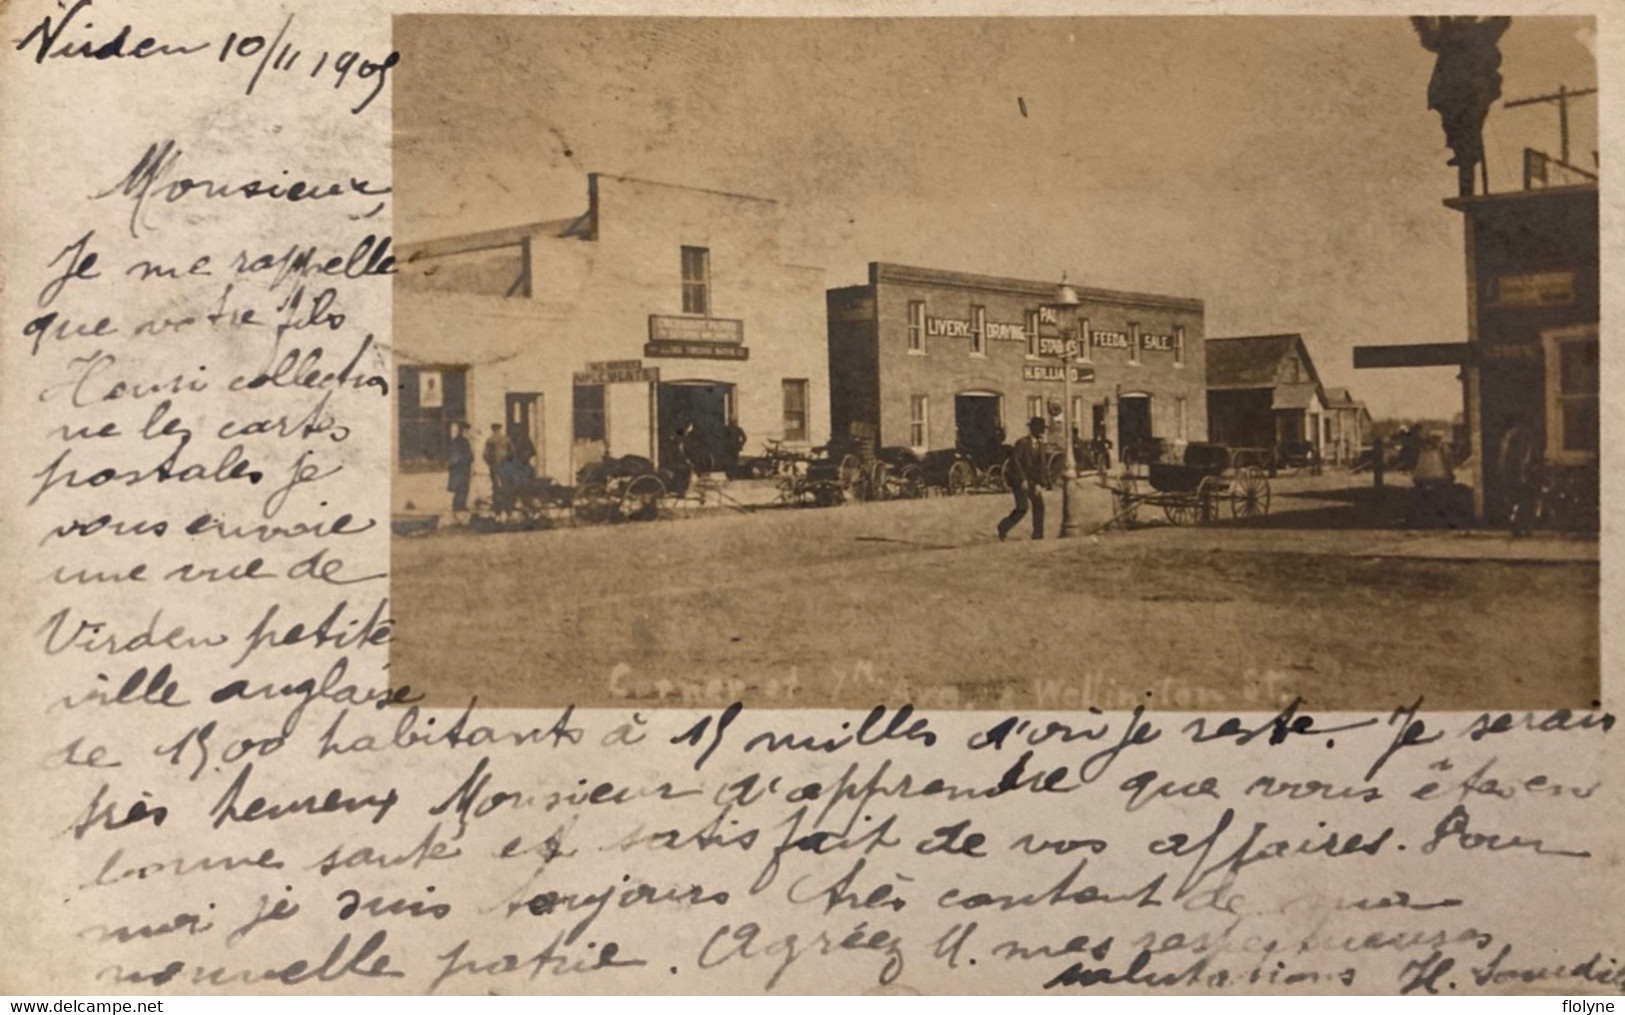 Virden 10/11 1905
Monsieur,
Je me rappelle
que votre fils
Henri collection
ne les cartes
postales je
vous envoie
une vue de
Virden petite
ville anglaise
de 1500 habitants à 15 milles d'où je reste. Je serais
très heureux Monsieur d'apprendre que vous êtes en
bonne santé et satisfait de vos affaires. Pour
moi je suis toujours très content de ma
nouvelle patrie. Agréez M. mes respectueuses
salutations H.
LIVERY. DRAYING PAL FEED& SALE.
STABLES
H.GILLIA D
Corner of 7th Ave. & Wellington St.
www.delcampe.net
flolyne